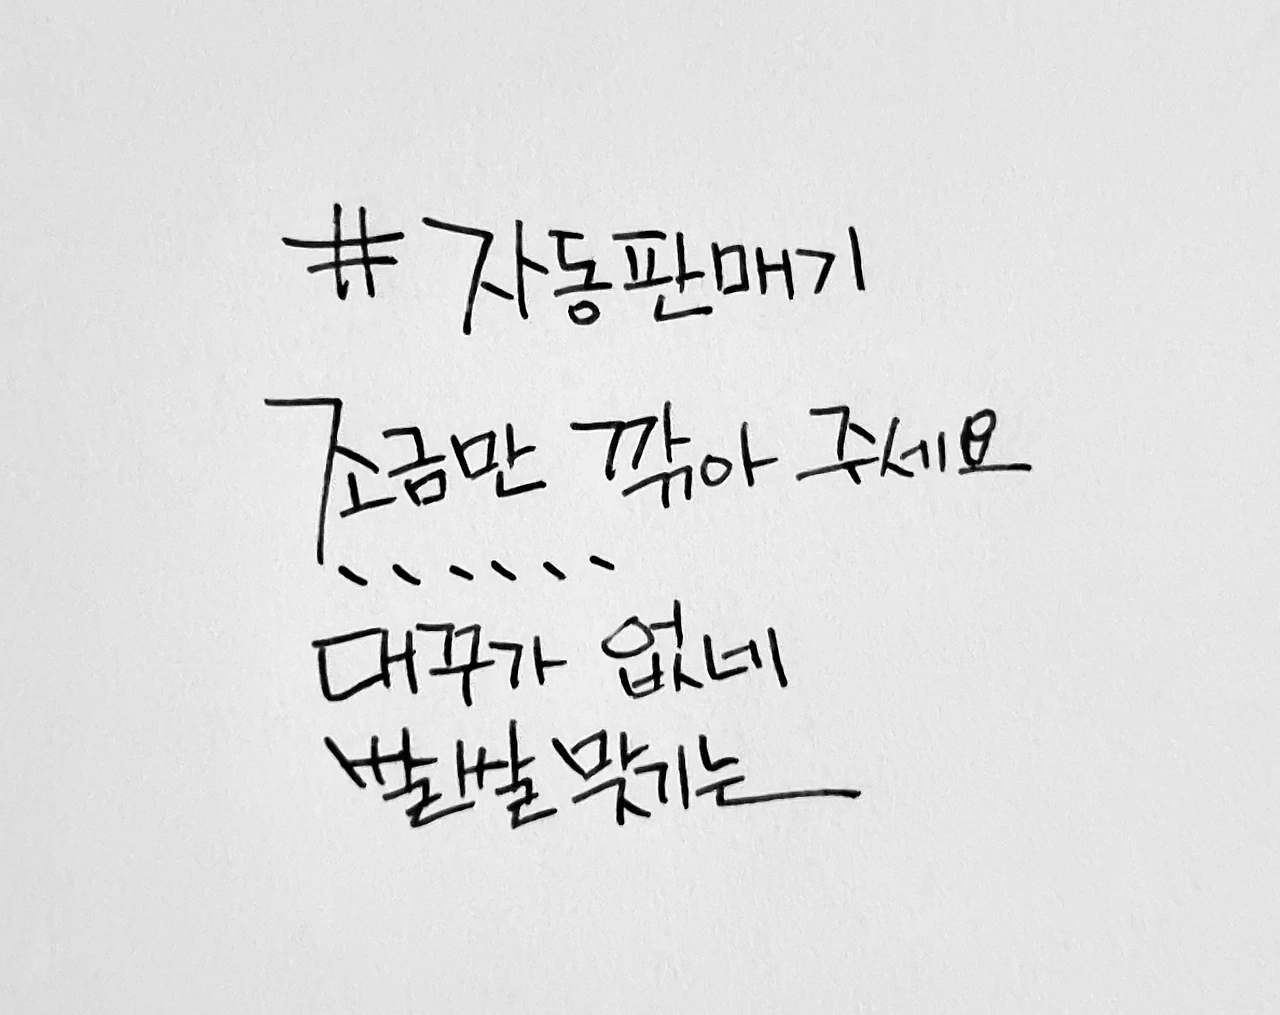 #자동판매기
조금만 깎아 주세요
、、、、、、
대꾸가 없네
쌀쌀맞기는